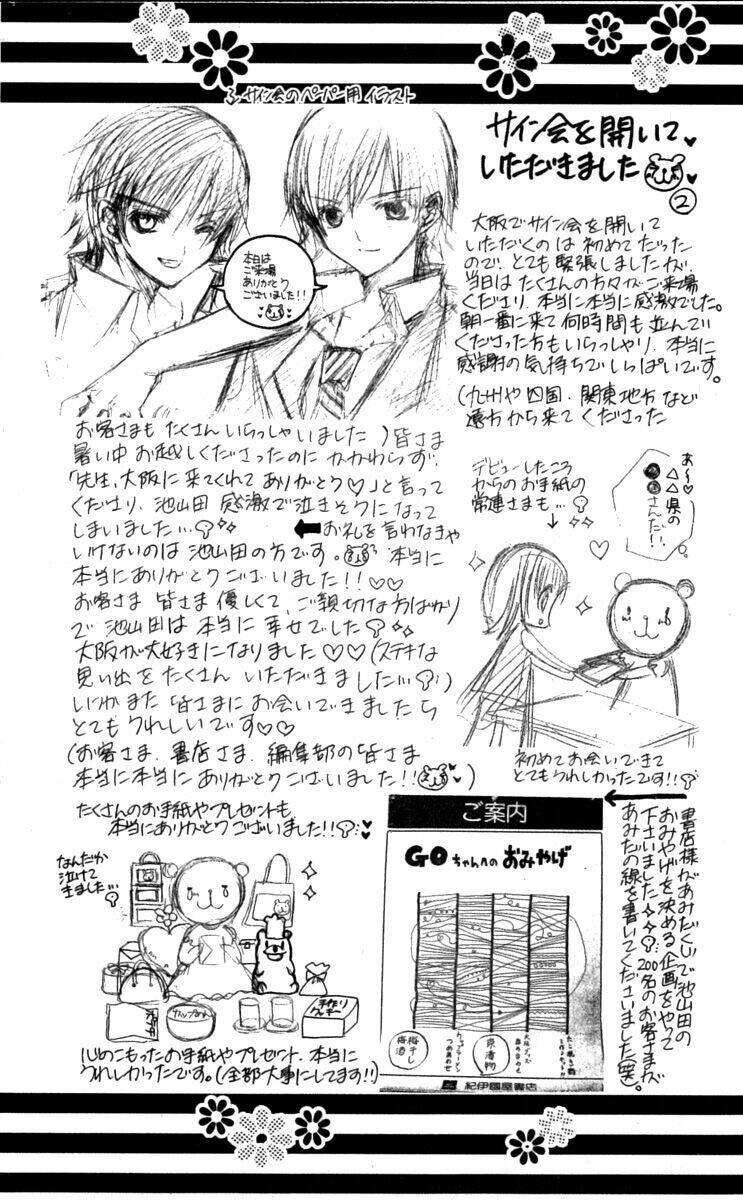 サイン会のペーパー用イラスト
サイン会を開いて
いただきました
②
本日は
ご来場
ありがとう
ございました!!
大阪でサイン会を開いて
いただくのは初めてだった
ので、とても緊張しましたが、
当日はたくさんの方々がご来場
くださり、本当に本当に感激でした。
朝一番に来て何時間も並んで
くださった方もいらっしゃり、本当に
感謝の気持ちでいっぱいです。
(九州や四国、関東地方など
遠方から来てくださった
お客さまもたくさんいらっしゃいました)皆さま
暑い中お越しくださったのにかかわらず、
「先生、大阪に来てくれてありがとう♡」と言って
くださり、池山田感激で泣きそうになって
しまいました…
←お礼を言わなきゃ
いけないのは池山田の方です。本当に
本当にありがとうございました!!♡♡
お客さま皆さま優しくて、ご親切な方ばかり
で池山田は本当に幸せでした
大阪が大好きになりました♡♡(ステキな
思い出をたくさんいただきました…)
いつかまた皆さまにお会いできましたら
とてもうれしいです♡♡
(お客さま、書店さま、編集部の皆さま
本当に本当にありがとうございました!!)
デビューしたころ
からのお手紙の
常連さまも…
↓
あ〜♡
△△県の
●●さんだ!!
初めてお会いできて
とてもうれしかったです!!
たくさんのお手紙やプレゼントも
本当にありがとうございました!!
なんだか
泣けて
きました…
カップめん
手作り
クッキー
心のこもったお手紙やプレゼント、本当に
うれしかったです。(全部大事にしてます!!)
ご案内
GOちゃんへのおみやげ
梅干し
梅酒
カップラーメン
つめあわせ
京漬物
大阪グッズ
紀伊國屋書店
書店様があみだくじで池山田の
おみやげを決める企画をやって
下さいました 200名のお客さまが
あみだの線を書いてくださいました(笑)。